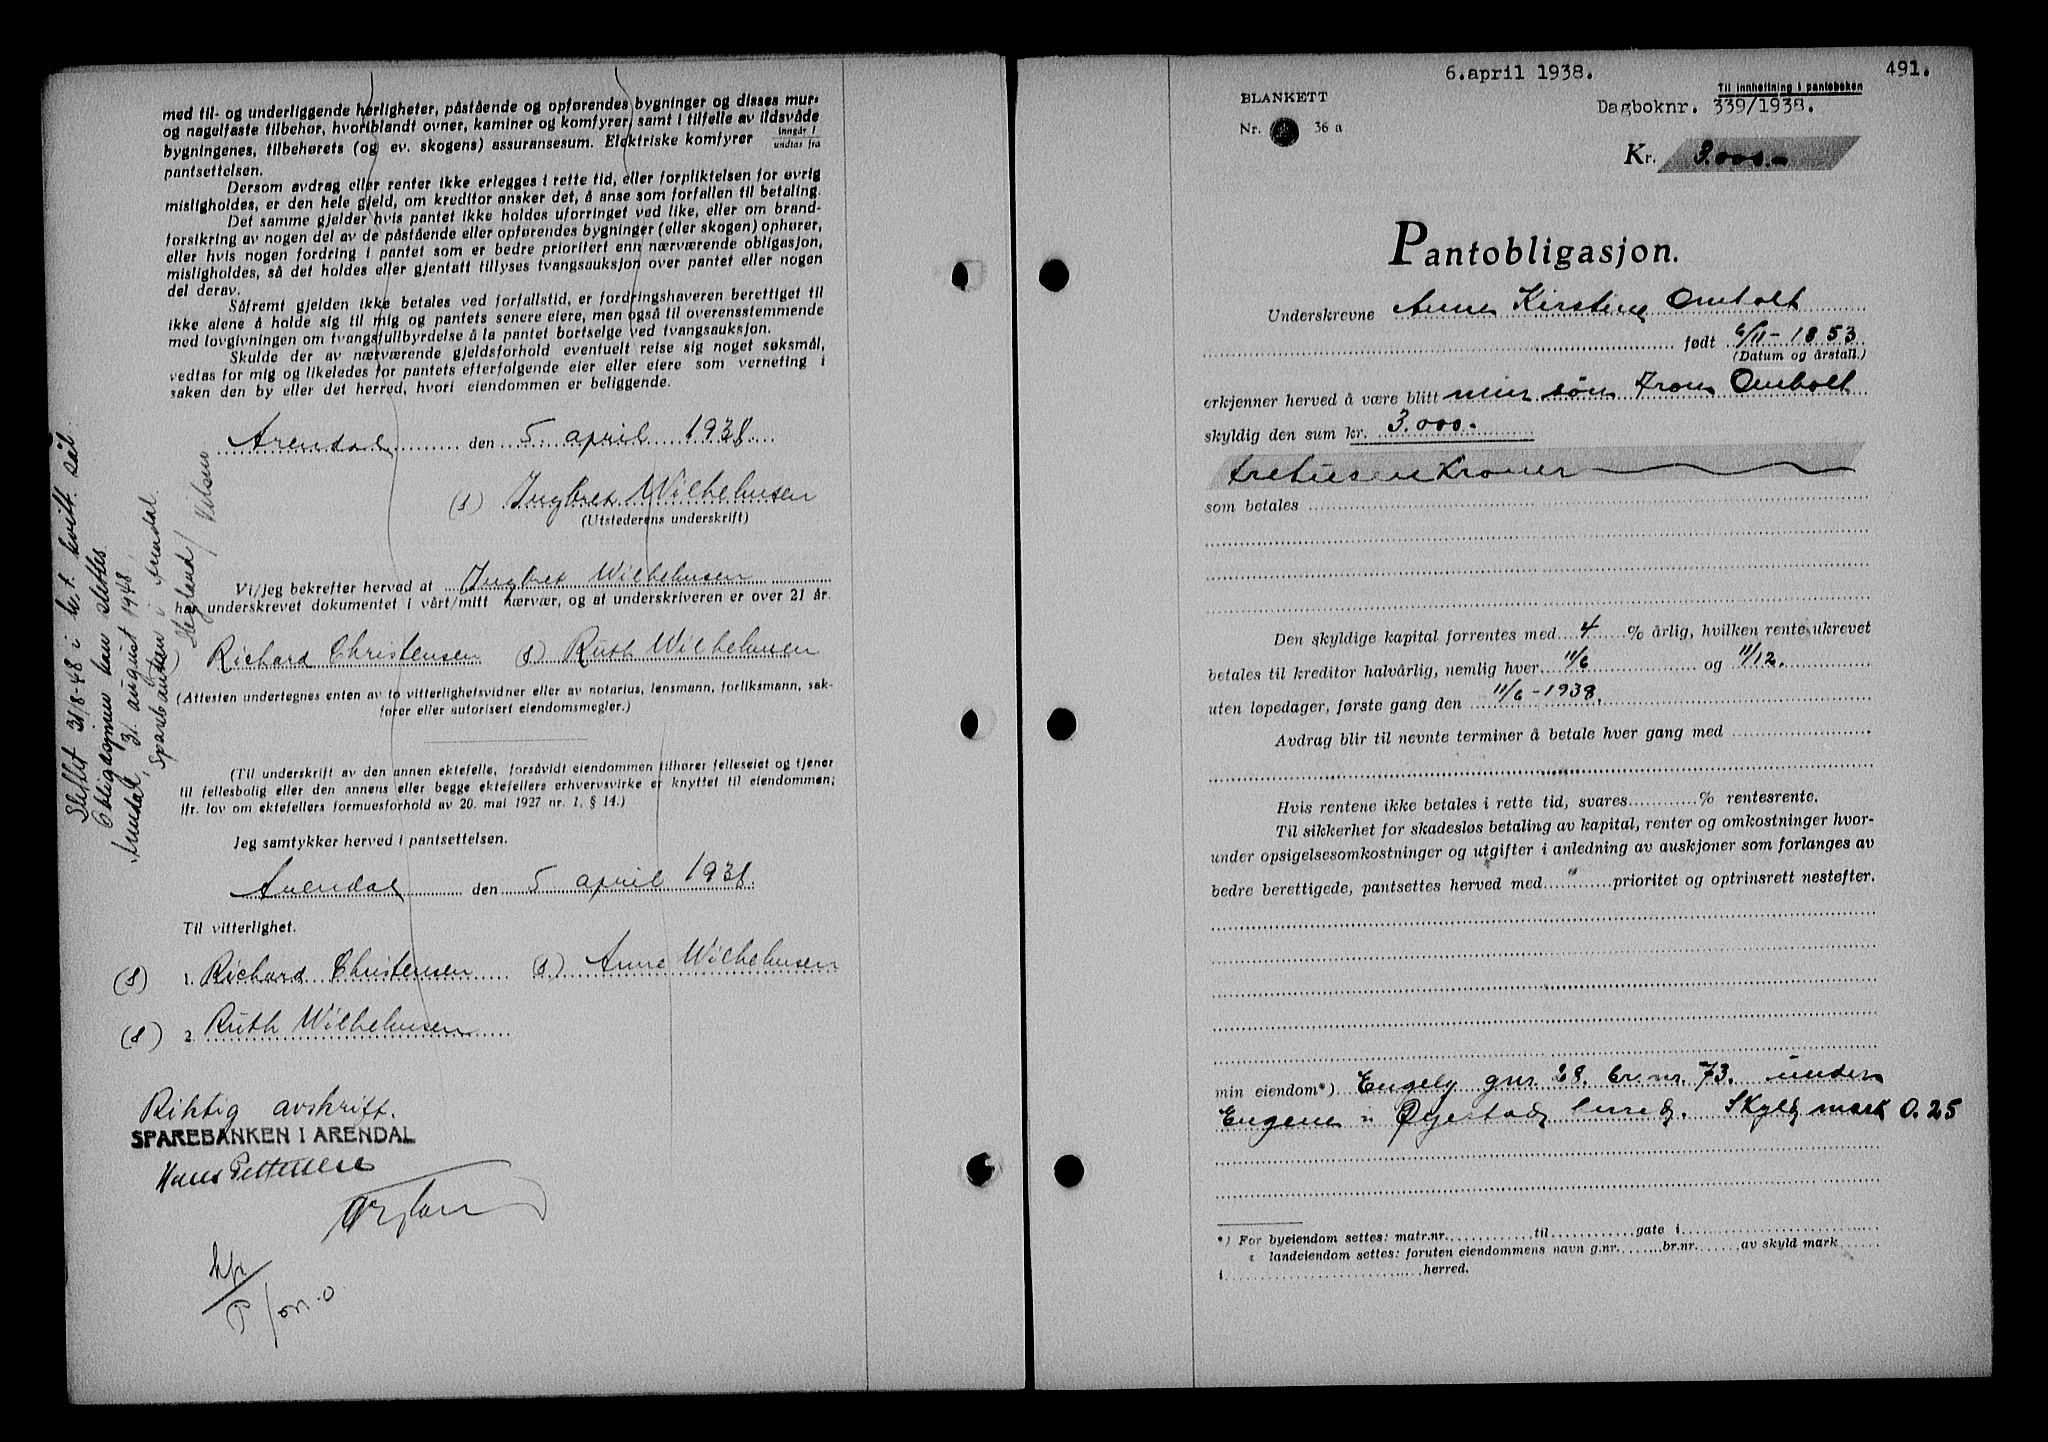 med til- og underliggende herligheter, påstående og opførendes bygninger og disses mur-
og nagelfaste tilbehør, hvoriblandt ovner, kaminer og komfyrer, samt i tilfelle av ildsvåde
bygningenes, tilbehørets (og ev. skogens) assuransesum. Elektriske komfyrer inngår i / undtas fra
pantsettelsen.
Dersom avdrag eller renter ikke erlegges i rette tid, eller forpliktelsen for øvrig
misligholdes, er den hele gjeld, om kreditor ønsker det, å anse som forfallen til betaling.
Det samme gjelder hvis pantet ikke holdes uforringet ved like, eller om brand-
forsikring av nogen del av de påstående eller opførendes bygninger (eller skogen) ophører,
eller hvis nogen fordring i pantet som er bedre prioritert enn nærværende obligasjon,
misligholdes, så det holdes eller gjentatt tillyses tvangsauksjon over pantet eller nogen
del derav.
Såfremt gjelden ikke betales ved forfallstid, er fordringshaveren berettiget til
ikke alene å holde sig til mig og pantets senere eiere, men også til overensstemmende
med lovgivningen om tvangsfullbyrdelse å la pantet bortselge ved tvangsauksjon.
Skulde der av nærværende gjeldsforhold eventuelt reise sig noget søksmål,
vedtas for mig og likeledes for pantets efterfølgende eier eller eiere som verneting i
saken den by eller det herred, hvori eiendommen er beliggende.
Arendal den 5 april 1938
(s) Ingbret Wilhelmsen
(Utstederens underskrift)
Vi/jeg bekrefter herved at Ingbret Wilhelmsen
har underskrevet dokumentet i vårt/mitt nærvær, og at underskriveren er over 21 år.
Richard Christensen (s) Ruth Wilhelmsen
(Attesten undertegnes enten av to vitterlighetsvidner eller av notarius, lensmann, forliksmann, sak-
fører eller autorisert eiendomsmegler.)
(Til underskrift av den annen ektefelle, forsåvidt eiendommen tilhører felleseiet og tjener
til fellesbolig eller den annens eller begge ektefellers erhvervsvirke er knyttet til eiendommen;
jfr. lov om ektefellers formuesforhold av 20. mai 1927 nr. 1, § 14.)
Jeg samtykker herved i pantsettelsen.
Arendal den 5 april 1938.
Til vitterlighet.
(s) 1. Richard Christensen (s) Anne Wilhelmsen
(s) 2. Ruth Wilhelmsen
Riktig avskrift.
SPAREBANKEN I ARENDAL
Hans Pettersen
Slettet 31/8-48 i h. t. kvitt. sål.
Obligasjonen kan slettes
Arendal, 31. august 1948
Sparebanken i Arendal.
6. april 1938.
491.
Til innheftning i panteboken
BLANKETT
Nr. 36 a
Dagboknr. 339/1938.
Kr. 3.000.-
Pantobligasjon.
Underskrevne Anne Kirstine Omholt
født 6/11-1853
(Datum og årstall.)
erkjenner herved å være blitt min søn Trom Omholt
skyldig den sum kr. 3.000.-
tretusen Kroner
som betales
Den skyldige kapital forrentes med 4 % årlig, hvilken rente ukrevet
betales til kreditor halvårlig, nemlig hver 11/6 og 11/12.
uten løpedager, første gang den 11/6-1938.
Avdrag blir til nevnte terminer å betale hver gang med
Hvis rentene ikke betales i rette tid, svares % rentesrente.
Til sikkerhet for skadesløs betaling av kapital, renter og omkostninger hvor-
under opsigelsesomkostninger og utgifter i anledning av auksjoner som forlanges av
bedre berettigede, pantsettes herved med prioritet og optrinsrett nestefter.
min eiendom*) Engely gnr. 28. brnr. 73. under
Engene i Øyestad herred. Skyld mark 0.25
*) For byeiendom settes: matr.nr. til gate i
« landeiendom settes: foruten eiendommens navn g.nr. br.nr. av skyld mark
i herred.